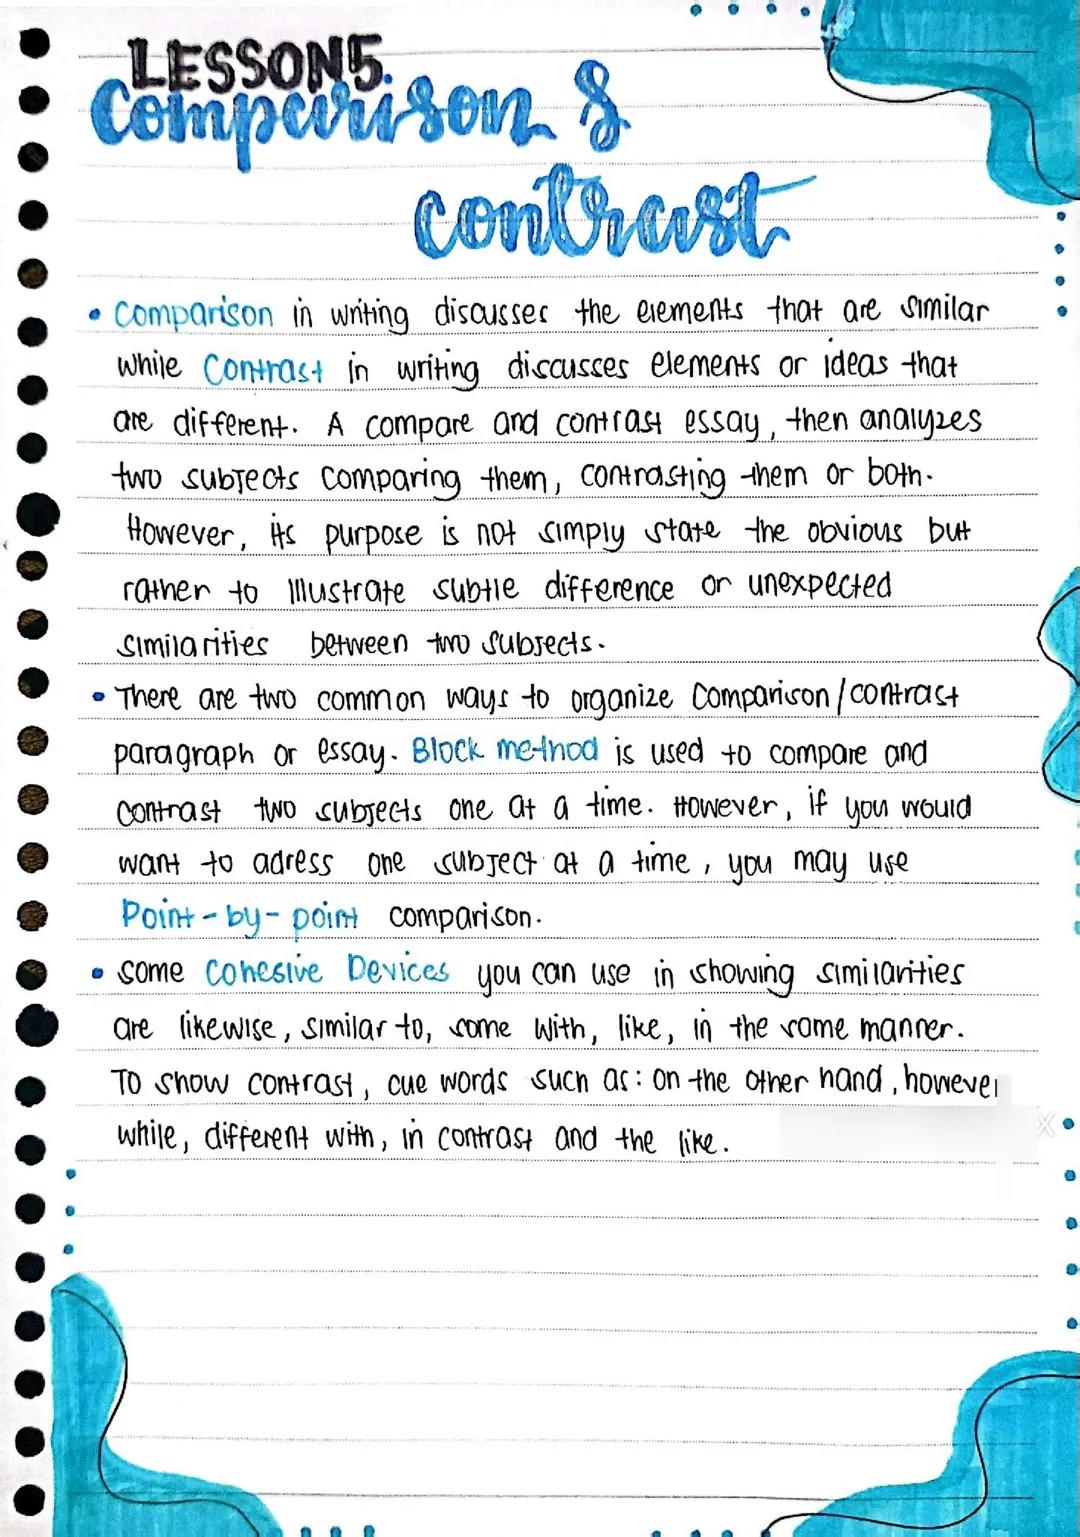 LESSON5.
Comparison &
contrast
• Comparison in writing discusses the elements that are similar
while Contrast in writing discusses elements or ideas that
are different. A compare and contrast essay, then analyzes
two subjects comparing them, contrasting them or both.
However, its purpose is not simply state the obvious but
rather to illustrate subtle difference or unexpected
similarities between two subjects.
• There are two common ways to organize Comparison/contrast
paragraph or essay. Block method is used to compare and
contrast two subjects one at a time. However, if you would
want to adress one subject at a time, you may use
Point-by-point comparison.
• some Cohesive Devices you can use in showing similarities
are likewise, similar to, same with, like, in the same manner.
To show contrast, cue words such as: on the other hand, however
while, different with, in contrast and the like.